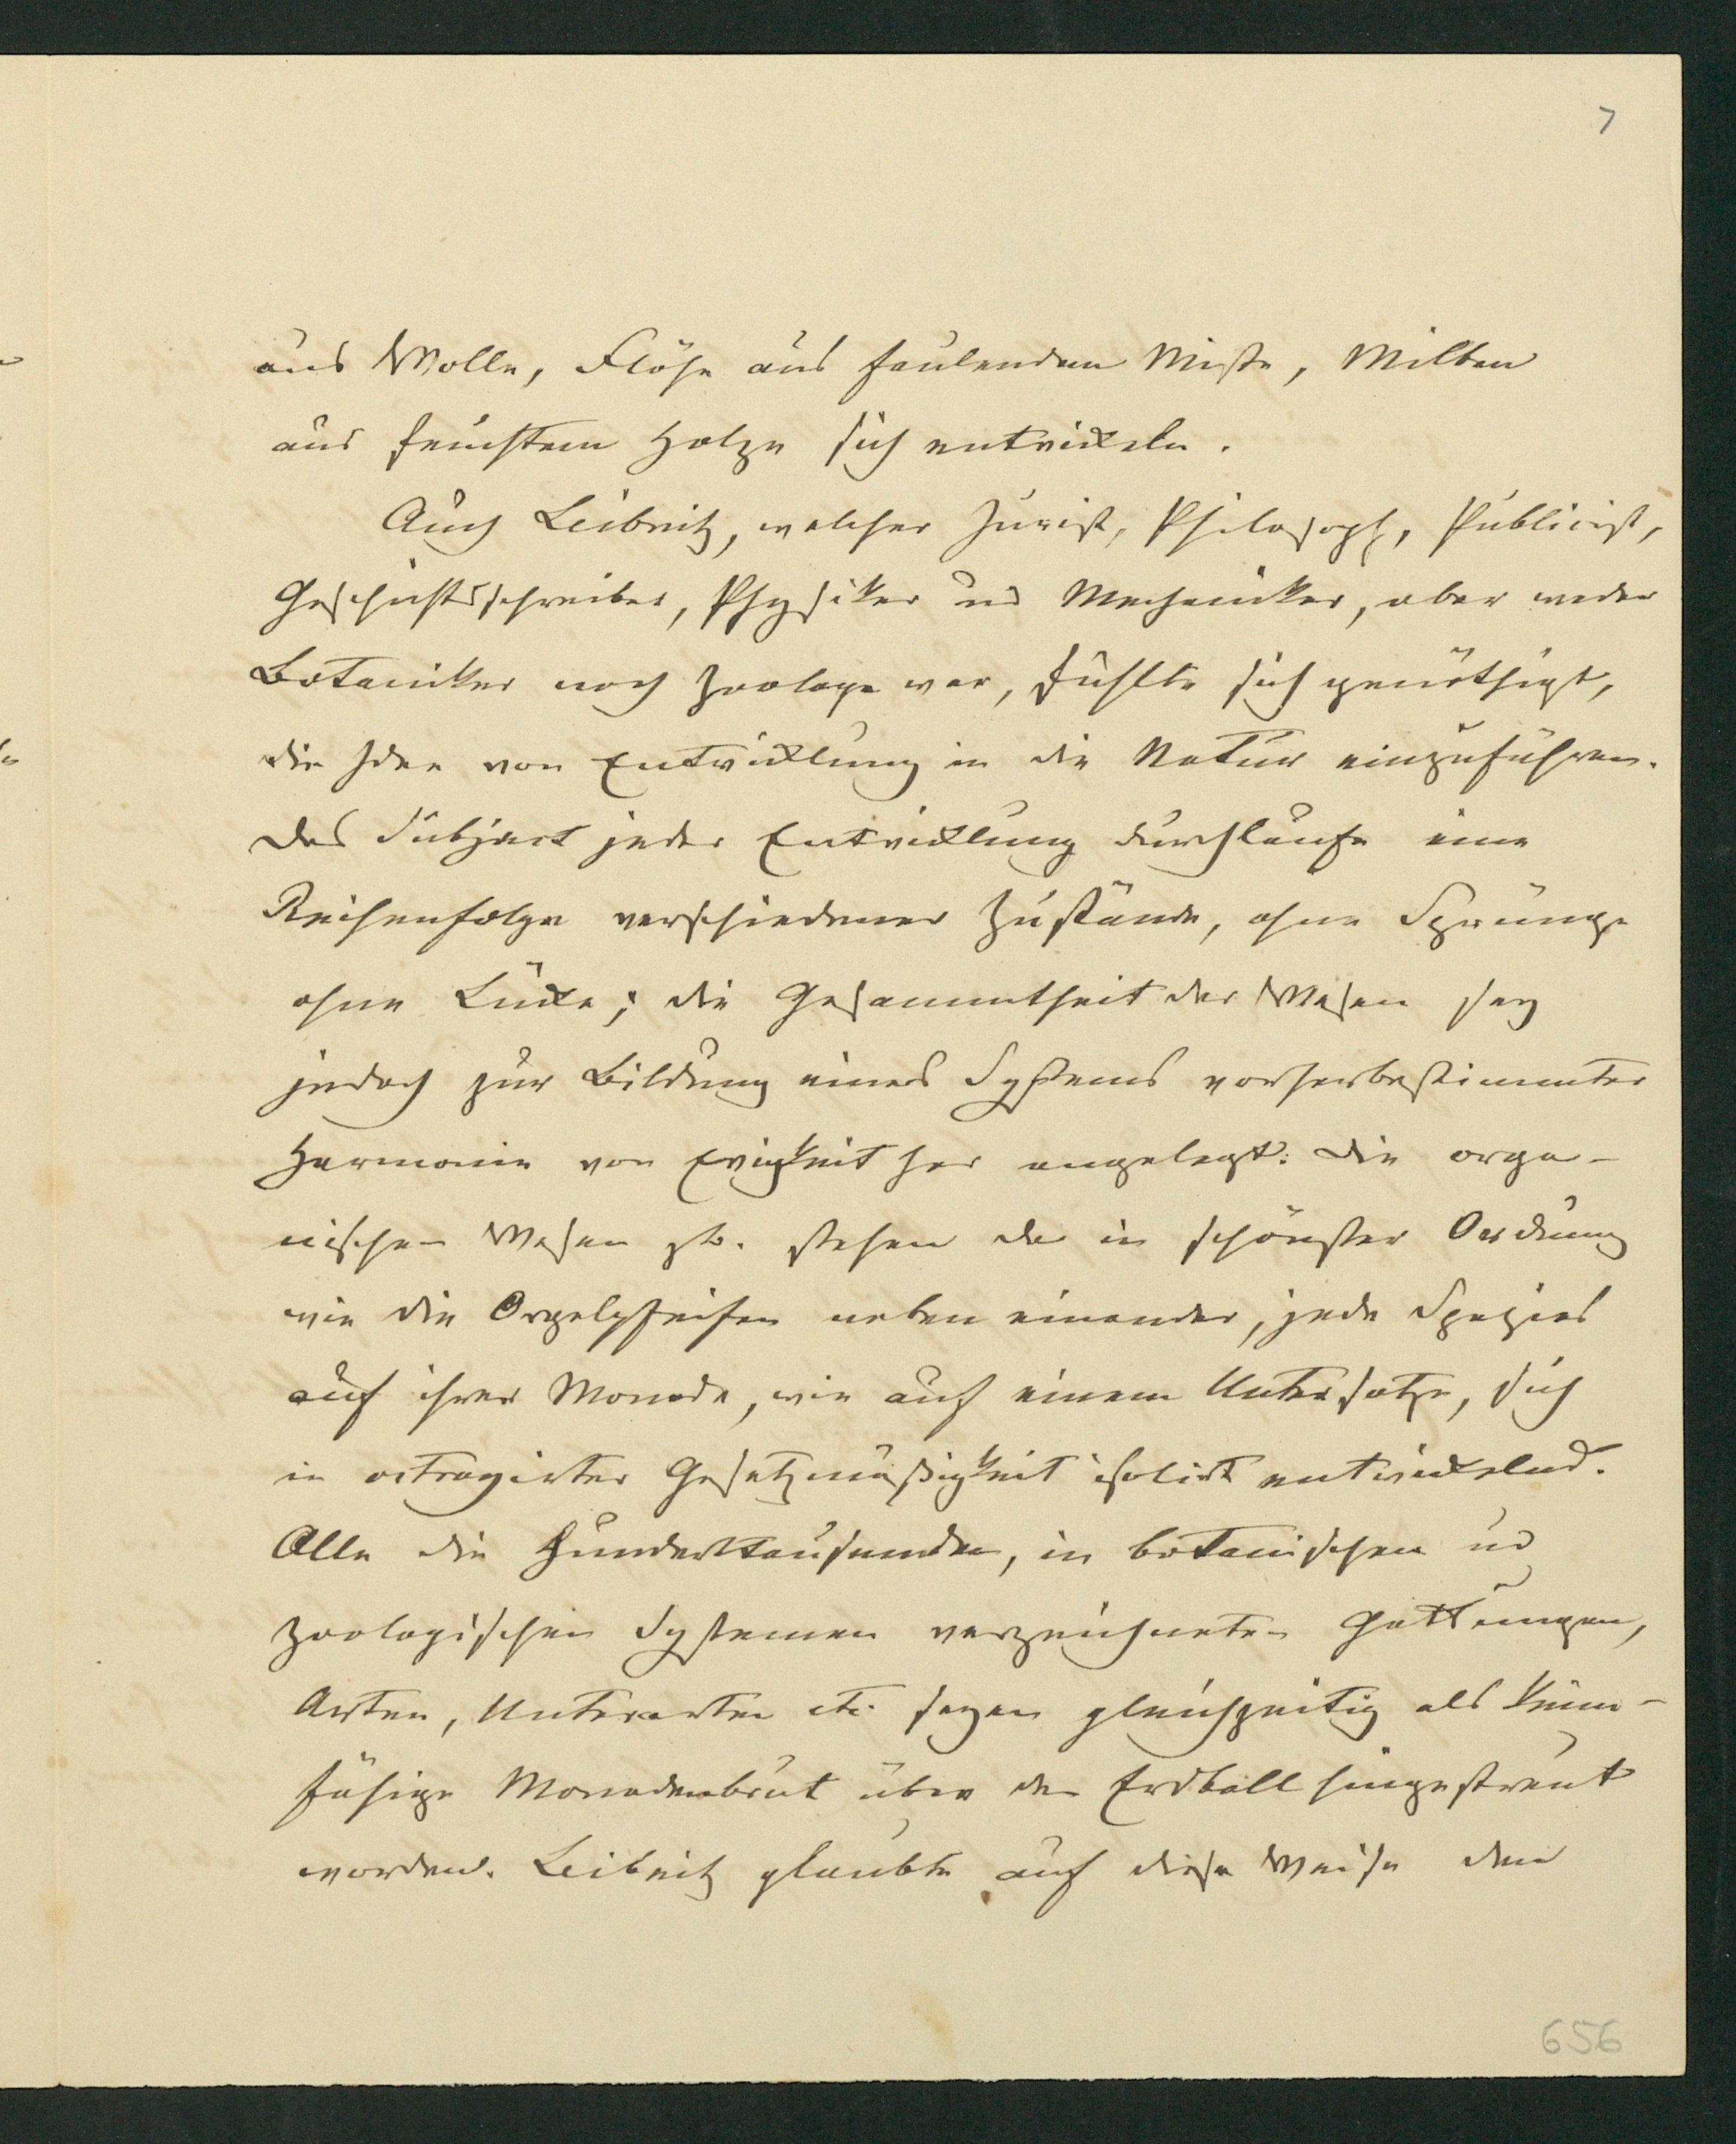 7
aus Wolle, Flöhe aus faulendem Miste, Milben
aus feuchtem Holze sich entwickeln.
Auch Leibnitz, welcher Jurist, Philosoph, Publicist,
Geschichtsschreiber, Physiker und Mechaniker, aber weder
Botaniker noch Zoologe war, fühlte sich genöthigt,
die Idee von Entwicklung in die Natur einzuführen.
Das Subject jeder Entwicklung durchlaufe eine
Reihenfolge verschiedener Zustände, ohne Sprünge
ohne Lücke; die Gesammtheit der Wesen sey
jedoch zur Bildung eines Systems vorherbestimmter
Harmonie von Ewigkeit her angelegt. Die orga-
nischen Wesen zb. stehen da in schönster Ordnung
wie die Orgelpfeifen neben einander, jede Spezies
auf ihrer Monade, wie auf einem Untersatze, sich
in octroyirter Gesetzmäßigkeit isolirt entwickelnd.
Alle die Hunderttausenden, in botanischen und
zoologischen Systemen verzeichneten Gattungen,
Arten, Unterarten etc. seyen gleichzeitig als keim-
fähige Monadenbrut über den Erdball hingestreut
worden. Leibnitz glaubte auf diese Weise den
656